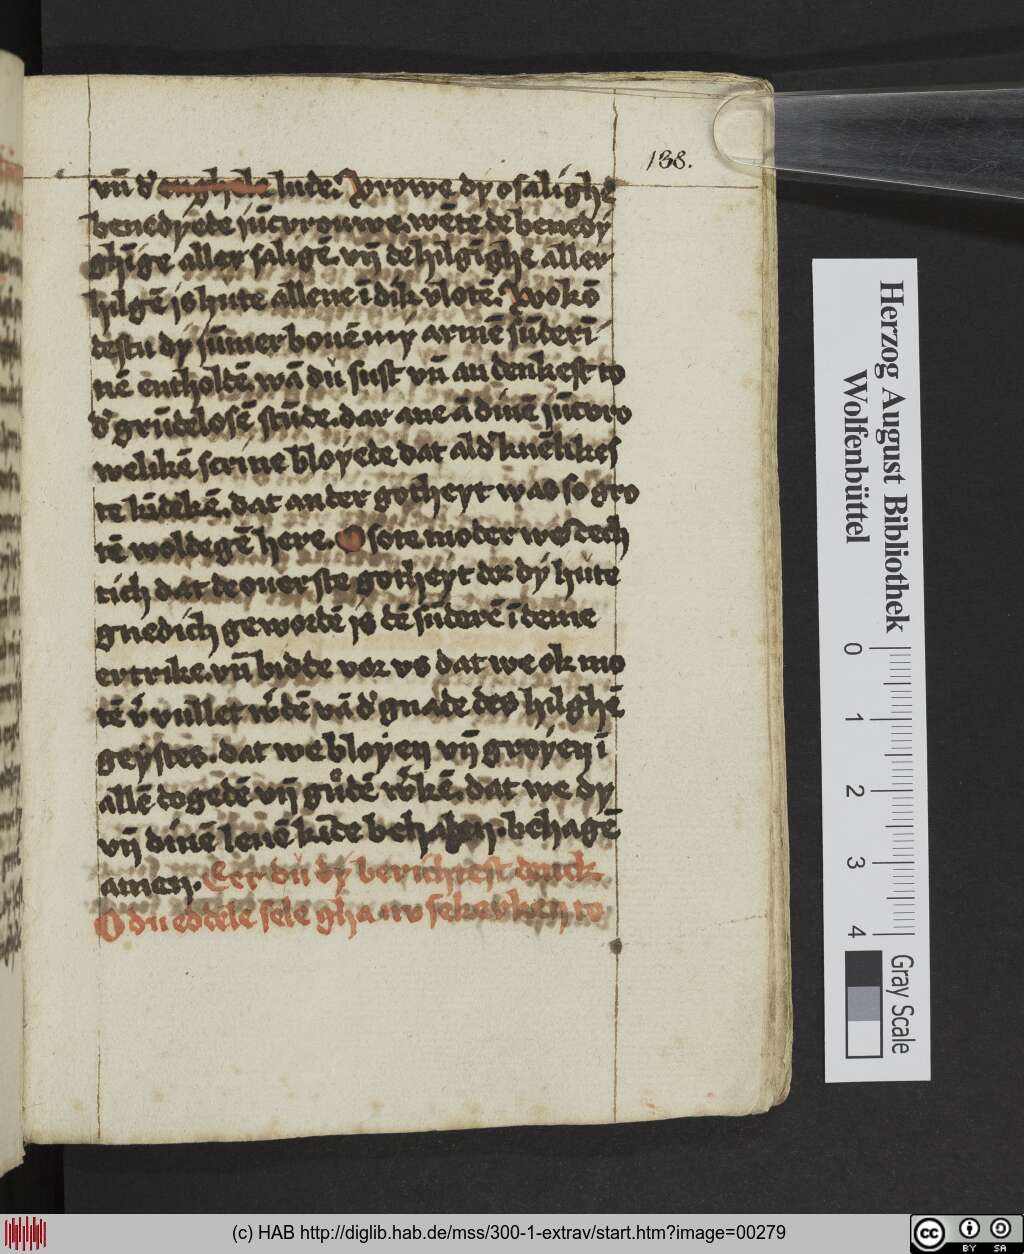 138.
vn̄ d' lude. Vrowe dy o salighe
benedyede jūcvrouwe. wēte de benedy
ghīge aller saligē. vn̄ de hilgīghe aller
hilgē js hute allene ī dik vlotē. Wo kō
destu dy jūmer bouē my armē sūderī
nē entholdē wā du sust vn̄ an denkest to
d' grūdelosē stūde. dar ane ā dinē jūcvro
welikē scrine bloyede dat ald' knēlikes
te kīdekē. dat an der gotheyt was so gro
tē woldegē here. O sote moder we
tich dat de ouerste gotheyt dor dy hute
gnedich gewordē js dē sūderē ī deme
ertrike. vn̄ bidde vor vs dat we ok mo
tē v'vullet w'dē vā d' gnade des hilghē
geystes. dat we bloyen vn̄ groyen ī
allē dogedē vn̄ gudē w'kē. dat we dy
vn̄ dinē leuē kīde behagen. behagē
amen. Eer du dy berichtest
O du eddele sele gha to
Herzog August Bibliothek
Wolfenbüttel
0 1 2 3 4
Gray Scale
(c) HAB http://diglib.hab.de/mss/300-1-extrav/start.htm?image=00279
cc BY SA